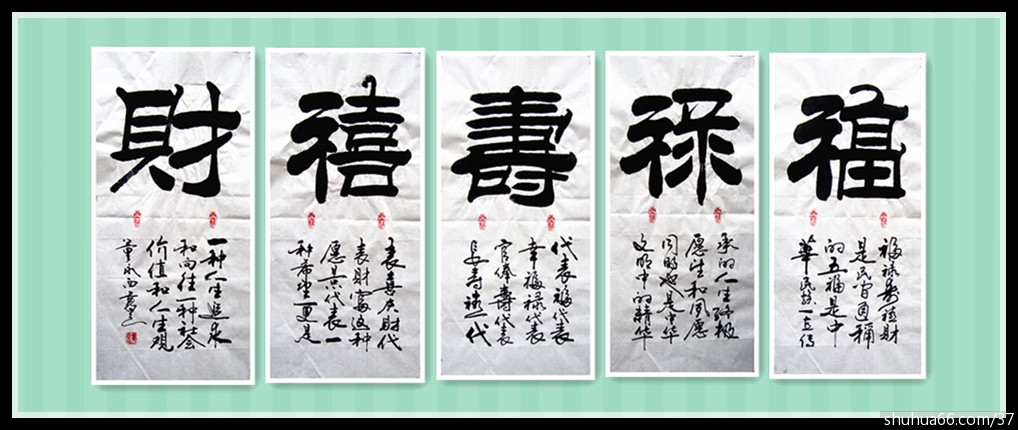 福
福禄寿禧财
是民间通称
的五福是中
華民族一直传
禄
承的人生终极
愿望和夙愿
同时也是中华
文明中的精华
壽
代表福代表
幸福禄代表
官俸壽代表
长寿禧代
禧
表喜庆财代
表财富这种
愿景代表一
种希望更是
財
一种人生追求
和向往一种社会
价值和人生观
shuhua66.com/37